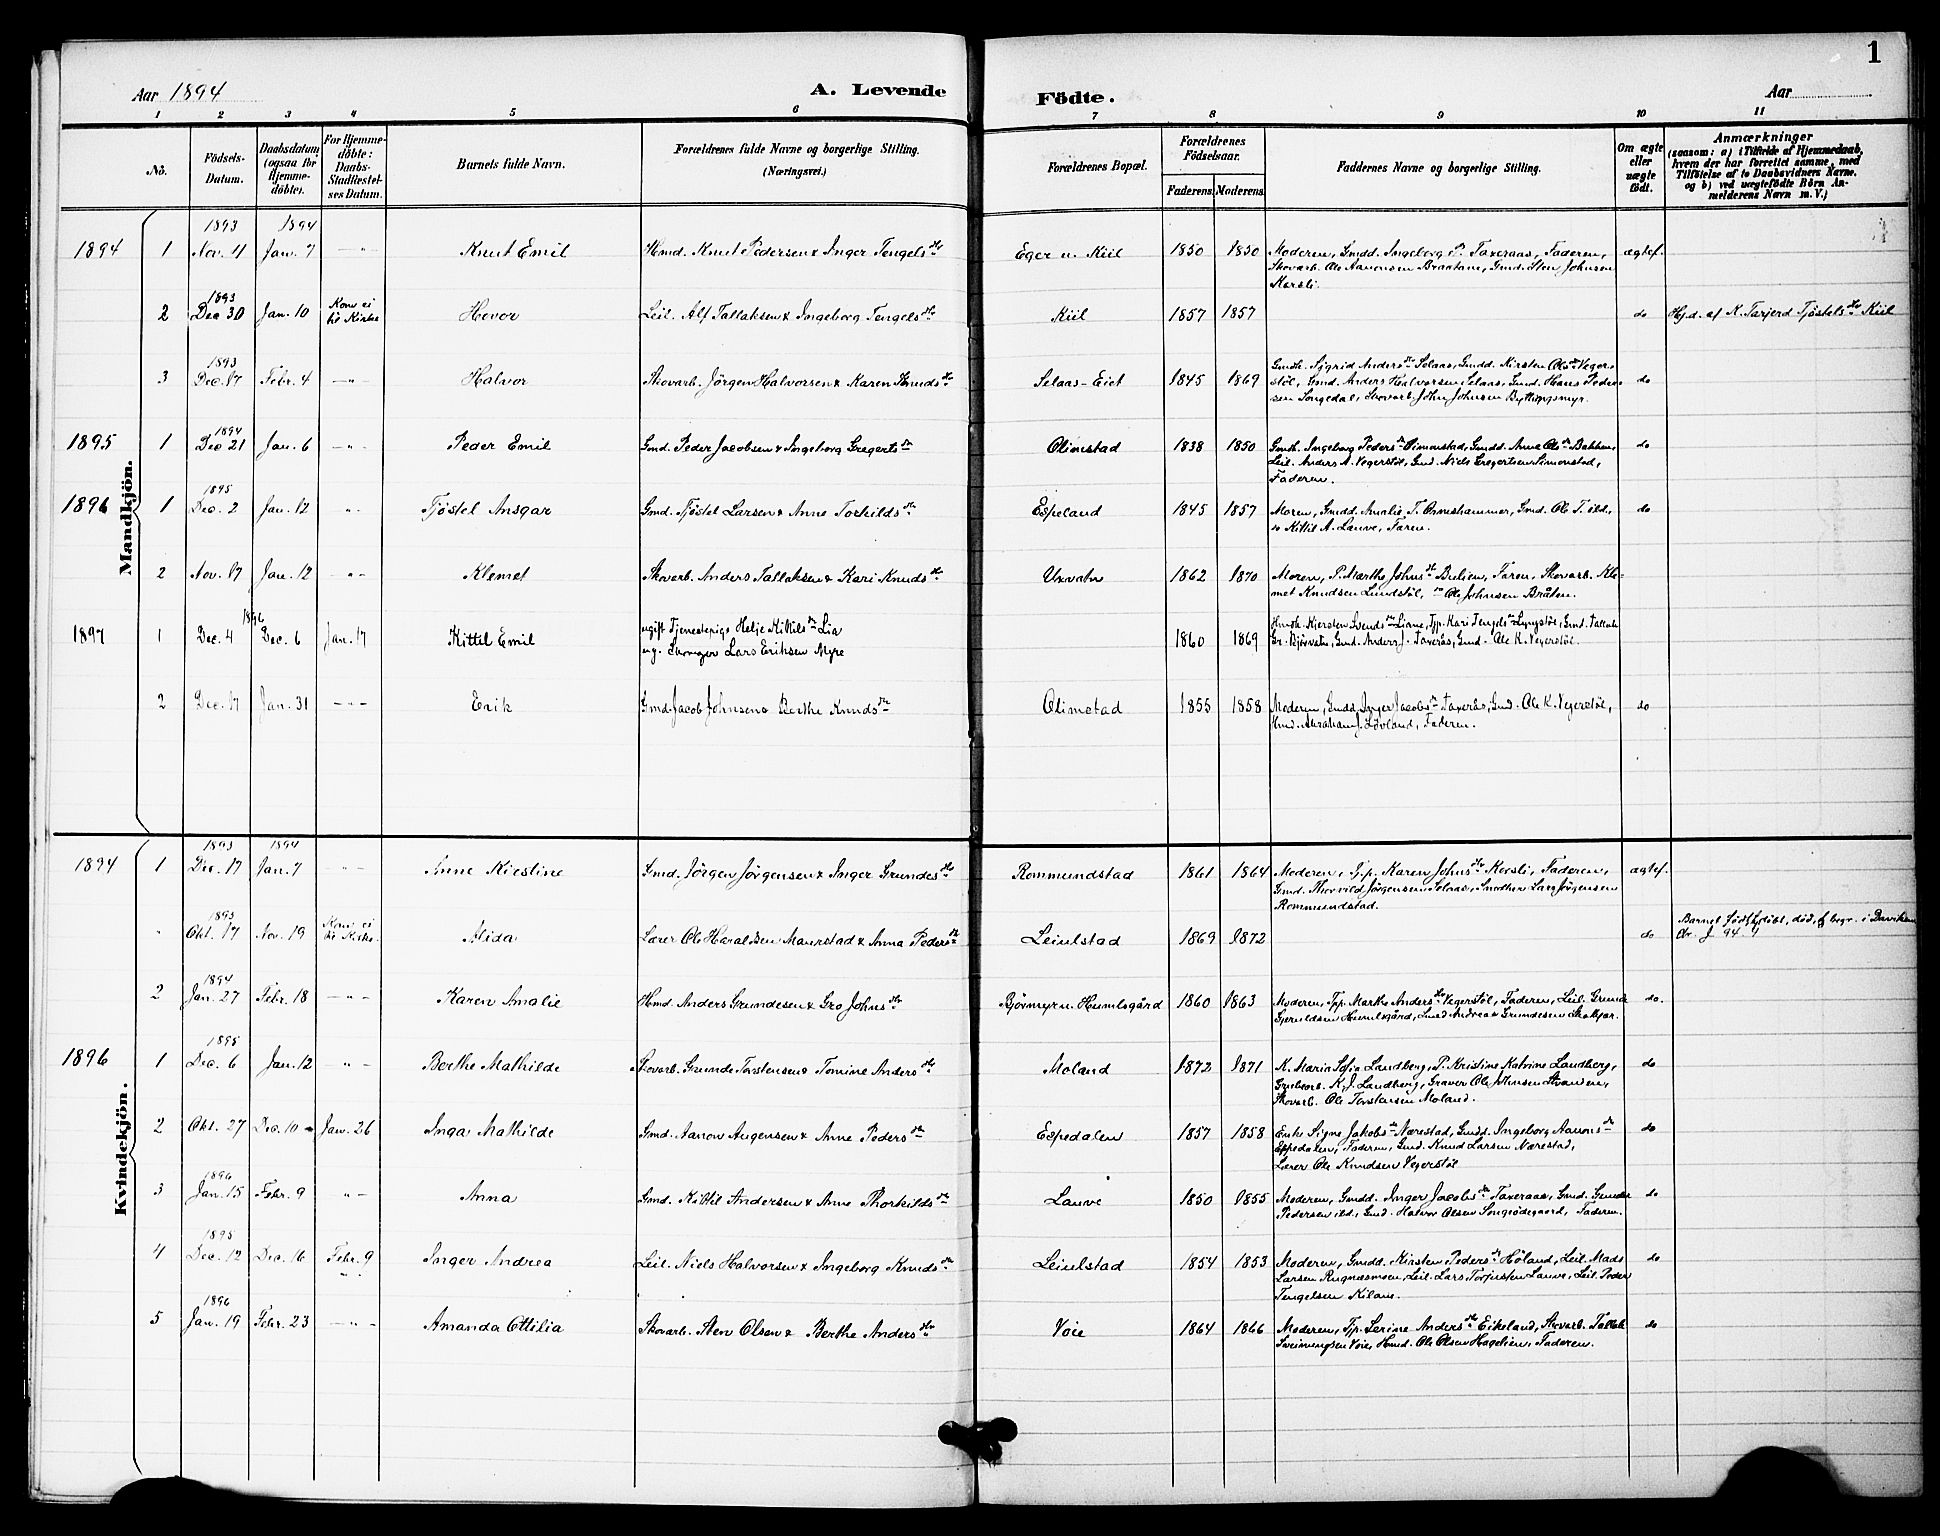 1
Aar 1894 A. Levende Födte. Aar
1 2 3 4 5 6 7 8 9 10 11
No. Födsels-Datum. Daabsdatum (ogsaa for Hjemmedöbte). For Hjemmedöbte: Daabs-Stadfæstelses Datum. Barnets fulde Navn. Forældrenes fulde Navne og borgerlige Stilling. (Næringsvei.) Forældrenes Bopæl. Forældrenes Födselsaar. Faderens Moderens Faddernes Navne og borgerlige Stilling. Om ægte eller uægte födt. Anmærkninger (saasom: a) i Tilfælde af Hjemmedaab, hvem der har forrettet samme, med Tilföielse af to Daabsvidners Navne. og b) ved uægtefödte Börn Anmelderens Navn m. V.)
Mandkjön.
1893 1894
1894 1 Nov. 11 Jan. 7 — " — Knut Emil Hmd. Knut Pedersen & Inger Tengelsdtr Eger u. Kiil 1850 1850 Moderen, Gmdd. Ingeborg P. Taxeraas, Faderen, ægtef.
Skovarb. Ole Aanonsen Braatane, Gmd. Sten Johnsen
Kersli.
1893
2 Dec 30 Jan. 10 Kom ei til Kirke Hovor Leil. Alf Tallaksen & Ingeborg Tengelsdtr Kiil 1857 1857 do Hj.d. af K. Tarjerd Tjöstelsdtr Kiil
1893
3 Dec. 17 Febr. 4 — " — Halvor Skovarb. Jörgen Halvorsen & Karen Knudsdtr Selaas-Eiet 1845 1869 Gmdk. Sigrid Andersdtr Selaas, Gmdd. Kirsten Olsdtr Veger- do
stöl, Gmd. Anders Halvorsen Selaas, Gmd. Hans Peder-
sen Songedal, Skovarb. John Johnsen Byttingsmyr.
1894
1895 1 Dec 21 Jan. 6 — " — Peder Emil Gmd. Peder Jacobsen & Ingeborg Gregertsdtr Olimstad 1838 1850 Gmdk. Ingeborg Pedersdtr Simonstad, Gmdd. Anne Olsdtr Bakken, do
Leil. Anders A. Vegerstöl, Gmd. Niels Gregertsen Simonstad,
Faderen.
1895
1896 1 Dec. 2 Jan. 12 " Tjöstel Ansgar Gmd. Tjöstel Larsen & Anne Torkildsdtr Espeland 1845 1857 Moren, Gmdd Amalie T. Ormshammer, Gmd. Ole T. ibd., do
do Kittil A. Lauve, Faren.
2 Nov. 17 Jan. 12 — " — Klemet Skovarb. Anders Tallaksen & Kari Knudsdtr Uxvatn 1862 1870 Moren, P. Marthe Johnsdtr Bulien, Faren, Skovarb. Kle-
met Knudsen Lundstöl, do Ole Johnsen Bråten.
1896
1897 1 Dec. 4 Dec. 6 Jan. 17 Kittel Emil ugift Tjenestepige Helje Kittilsdtr Lia 1860 1869 Hmdk. Kjersten Svendsdtr Liane, Tjp. Kari Tengelsdtr Lyngstöl, Gmd. Tallak
ug. Lars Eriksen Myre Gr. Bjørvatn, Gmd. Anders J. Taxerås, Gmd. Ole K. Vegerstöl.
2 Dec. 17 Jan. 31 — " — Erik Gmd. Jacob Johnsen & Berthe Knudsdtr Olimstad 1855 1858 Moderen, Gmdd. Inger Jacobsdtr Taxerås, Gmd. Ole K. Vegerstöl, do
Hmd. Abraham J. Lövland, Faderen.
Kvindekjön.
1893 1894
1894 1 Dec. 17 Jan. 7 " Anne Kirstine Gmd. Jörgen Jörgensen & Inger Grundesdtr Rommundstad 1861 1864 Moderen, Tj.p. Karen Johnsdtr Kersli, Faderen, ægtef.
Gmd. Thorvild Jörgensen Selaas, Smedken Lars Jörgensen
Rommundstad.
1893
" Okt. 17 Nov. 19 Kom ei til Kirke. Alida Lærer Ole Haraldsen Maurstad & Anna Pedersdtr Leiulstad 1869 1872 do Barnet født, døbt, død, & begr. i Daviken
1894
2 Jan. 27 Febr. 18 — " — Karen Amalie Hmd. Anders Grundesen & Gro Johnsdtr Bjövmyr u. Humlsgård 1860 1863 Moderen, Tjp. Marthe Andersdtr Vegerstöl, Faderen, Leil. Grunde do.
Gjeruldsen Humlsgård, Gmd Andreas Grundesen Skaltjør.
1895
1896 1 Dec. 6 Jan. 12 " Berthe Mathilde Skovarb. Grunde Torstensen & Tomine Andersdtr Moland 1872 1871 K. Maria Sofia Landberg, P. Kristine Katrine Landberg, do
Grubearb. K. J. Landberg, Graver Ole Johnsen Svansen,
Skovarb. Ole Torstensen Moland.
2 Okt. 27 Dec. 10 Jan. 26 Inga Mathilde Gmd. Aanon Augensen & Anne Pedersdtr Espedalen 1857 1858 Enke Signe Jakobsdtr Nærestad, Gmdd. Ingeborg Aanonsdtr do
Espedalen, Faderen, Gmd. Knud Larsen Nærestad,
Lærer Ole Knudsen Vegerstöl
1896
3 Jan. 15 Febr. 9 " Anna Gmd. Kittil Andersen & Anne Thorkildsdtr Lauve 1850 1855 Moderen, Gmdd. Inger Jacobsdtr Taxeraas, Gmd. Gunder do
Pedersen ibd., Gmd. Halvor Olsen Songeödegaard, Faderen.
1895
4 Dec. 12 Dec. 16 Febr. 9 Inger Andrea Leil. Niels Halvorsen & Ingeborg Knudsdtr Leiulstad 1854 1853 Moderen, Gmdd. Kirsten Pedersdtr Höland, Leil. Mads do
Larsen Rugnæsmoen, Leil. Lars Torjussen Lauve, Leil. Peder
Tengelsen Kilane.
1896
5 Jan. 19 Febr. 23 — " — Amanda Ottilia Skovarb. Sten Olsen & Berthe Andersdtr Voie 1864 1866 Moderen, Tjp. Serine Andersdtr Eikeland, Skovarb. Tallak do
Sveinungsen Voie, Hmd. Ole Olsen Hagelien, Faderen.